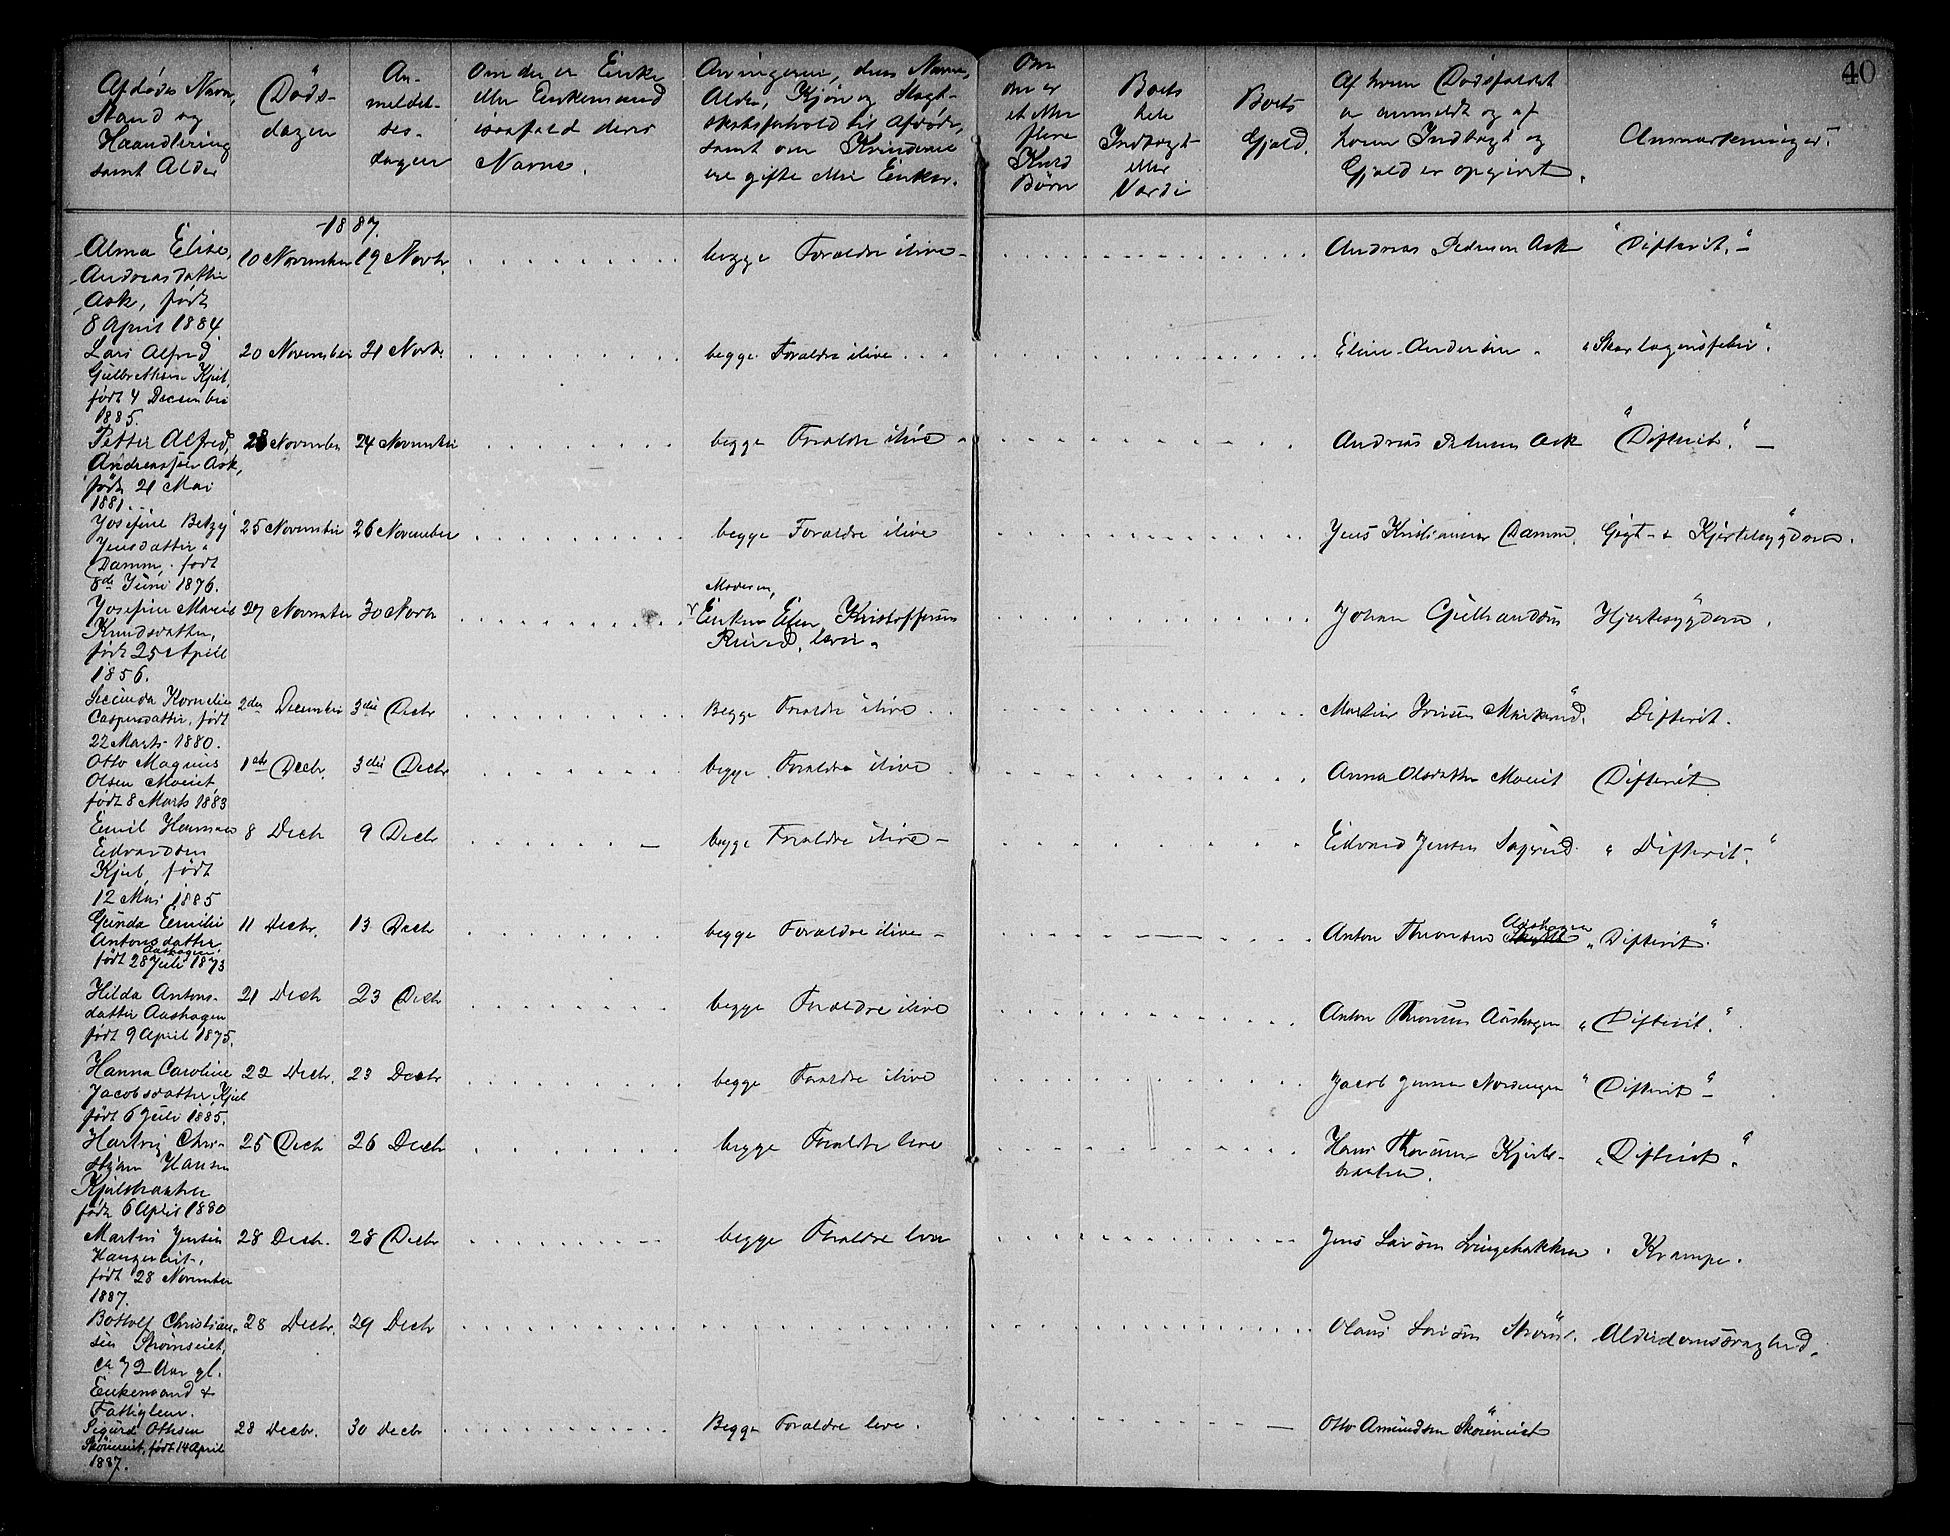 40
Afdødes Navn,
Stand og
Haandtering
samt Alder
Døds-
dagen
An-
meldel-
ses-
dagen
Om der er Enke
eller Enkemand
isaafald deres
Navne.
Arvingerne, deres Navne,
Alder, Kjøn og Slægt-
skabsforhold til Afdøde,
samt om Kvinderne
ere gifte eller Enker.
Om
der er
et eller
flere
Kuld
Børn
Boets
hele
Indtægt
eller
Værdi
Boets
Gjæld.
Af hvem Dødsfaldet
er anmeldt og af
hvem Indtægt og
Gjæld er opgivet.
Anmærkninger.
1887.
Alma Elise,
Andreasdatter
Ask, født
8 April 1884
10 November 19 Novbr. begge Forældre ilive - Andreas Pedersen Ask "Difterit." -
Lars Alfred
Gulbrandsen Kjel,
født 4 December
1885.
20 November 21 Novbr. begge Forældre ilive Eline Andersen "Skarlagensfeber".
Petter Alfred,
Andreassen Ask,
født 21 Mai
1881.
23 November 24 November begge Forældre ilive - Andreas Pedersen Ask "Difterit." -
Josefine Betzy
Jensdatter
Damm, født
8de Juni 1876.
25 November 26 November begge Forældre ilive Jens Kristiansen Damm. Gigt- & Kjertelsygdom.
Josefine Marie
Knudsdatter,
født 25 April
1856.
27 November 30 Novbr
Moderen,
Enken Elen Kristoffersen
Ruud, lever.
Johan Gulbrandsen Hjertesygdom.
Secunda Kornelie
Caspersdatter, født
22 Marts 1880.
2den December 3die Decbr Begge Forældre ilive Martin Iversen Difterit.
Otto Magnus
Olsen Moeiet,
født 8 Marts 1883
1ste Decbr. 3die Decbr begge Forældre ilive Anna Olsdatter Moeiet Difterit.
Emil Herman
Edvardsen
Kjel, født
12 Mai 1885
8 Decbr 9 Decbr begge Forældre ilive - Edvard Jensen "Difterit."
Gunda Emilie
Antonsdatter,
Aashagen
født 28 Juli 1873
11 Decbr. 13 Decbr begge Forældre ilive - Anton Thoresen Aashagen "Difterit".
Hilda Antons-
datter Aashagen
født 9 April 1875.
21 Decbr 23 Decbr begge Forældre ilive Anton Thoresen Aashagen "Difterit."
Hanna Caroline
Jacobsdatter Kjel
født 6 Juli 1885.
22 Decbr. 23 Decbr begge Forældre ilive Jacob Jensen "Difterit" -
Hartvig Chri-
stian Hansen
Kjelsbraaten
født 6 April 1880
25 Decbr 26 Decbr begge Forældre leve
Hans Thoresen Kjels-
braaten.
"Difterit".
Martin Jensen
født 28 November
1887.
28 Decbr. 28 Decbr begge Forældre lever Jens Larsen Krampe.
Bottolf Christian-
sen Strømseiet,
ca 72 Aar gl.
Enkemand &
Fattiglem.
28 Decbr. 29 Decbr Olaus Larsen Alderdomssvaghed.
Sigurd Ottesen
født 14 April
1887.
28 Decbr. 30 Decbr Begge Forældre leve. Otto Amundsen